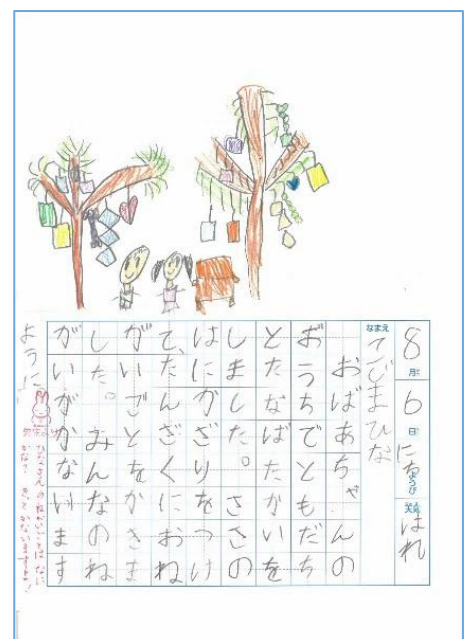 8月6日にちようび天気はれ
なまえ てじまひな
おばあちゃんの
おうちでともだち
とたなばたかいを
しました。ささの
はにかざりをつけ
て、たんざくにおね
がいごとをかきま
した。みんなのね
がいがかないます
ように。
ひなさんのねがいごとはなに
かな？きっとかないますよ！